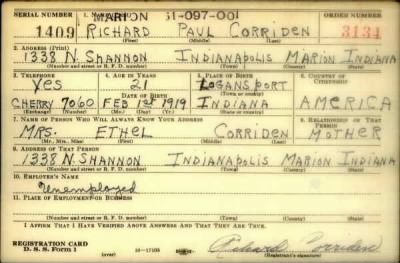 SERIAL NUMBER 1. NAME MARION 51-097-001 ORDER NUMBER
1409 RICHARD PAUL CORRIDEN 3134
(First) (Middle) (Last)
2. ADDRESS (Print)
1338 N. SHANNON INDIANAPOLIS MARION INDIANA
(Number and street or R. F. D. number) (Town) (County) (State)
3. TELEPHONE 4. AGE IN YEARS 5. PLACE OF BIRTH 6. COUNTRY OF CITIZENSHIP
YES 21 LOGANSPORT
DATE OF BIRTH (Town or county)
CHERRY 7060 FEB 1ST 1919 INDIANA AMERICA
(Exchange) (Number) (Mo.) (Day) (Yr.) (State or country)
7. NAME OF PERSON WHO WILL ALWAYS KNOW YOUR ADDRESS 8. RELATIONSHIP OF THAT PERSON
MRS. ETHEL CORRIDEN MOTHER
(Mr., Mrs., Miss) (First) (Middle) (Last)
9. ADDRESS OF THAT PERSON
1338 N. SHANNON INDIANAPOLIS MARION INDIANA
(Number and street or R. F. D. number) (Town) (County) (State)
10. EMPLOYER'S NAME
Unemployed
11. PLACE OF EMPLOYMENT OR BUSINESS
(Number and street or R. F. D. number) (Town) (County) (State)
I AFFIRM THAT I HAVE VERIFIED ABOVE ANSWERS AND THAT THEY ARE TRUE.
REGISTRATION CARD
D. S. S. Form 1 (over) 16—17105 Richard Corriden
(Registrant's signature)